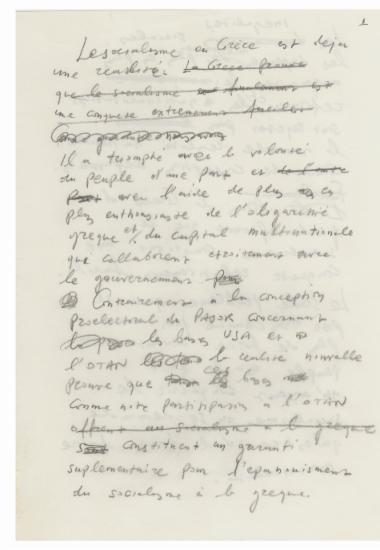 1
Le socialisme en Grèce est déja
une realité. La Grèce prouve
que le socialisme est
une conquete extremement
Il a triomphé avec la volonté
du peuple d'une part et de l'autre
part avec l'aide de plus en
plus enthousiaste de l'oligarchie
grèque et du capital multinationale
que collaborent etroitement avec
le gouvernement
Contrairement à la conception
proelectoral du PASOK concernant
les bases USA et
l'OTAN la realité nouvelle
prouve que ces bases
comme notre participation à l'OTAN
offrent au socialisme à la grèque
constituent un garanti
suplementaire pour l'epanouissement
du socialisme à la grèque.